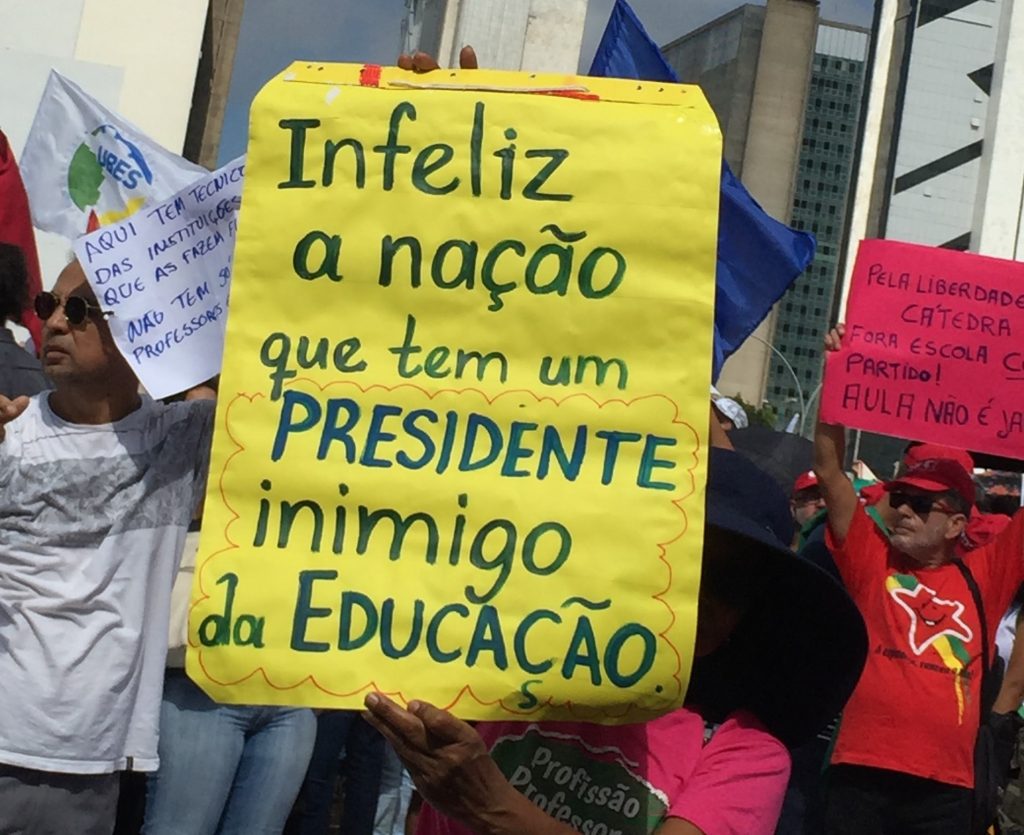 Infeliz
a nação
que tem um
PRESIDENTE
inimigo
da EDUCAÇÃO.
UBES
AQUI TEM TECNICO
DAS INSTITUIÇÕES
QUE AS FAZEM
NÃO TEM
PROFESSORES
PELA LIBERDADE
CÁTEDRA
FORA ESCOLA
PARTIDO!
AULA NÃO É
Profissão
Professor